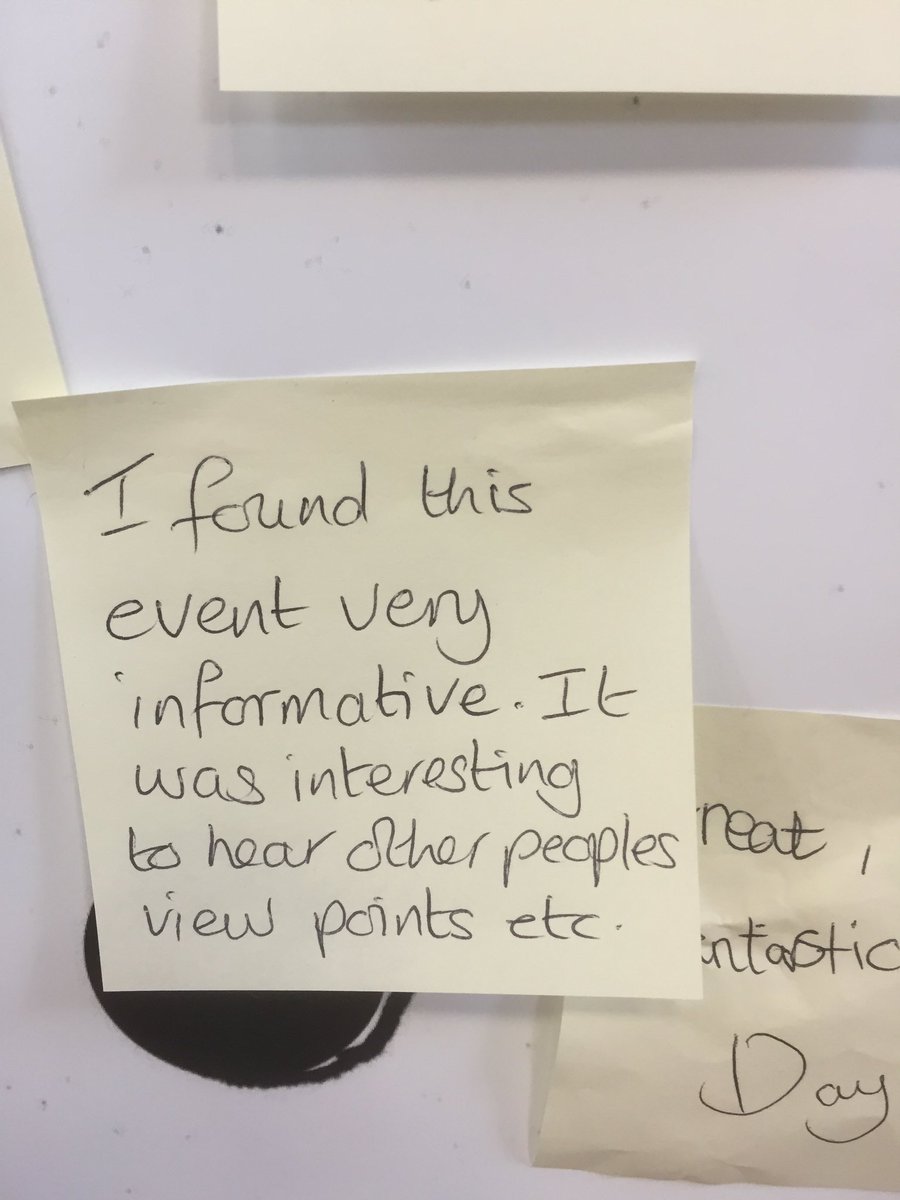 I found this
event very
informative. It
was interesting
to hear other peoples
view points etc.
reat,
ntastic
Day